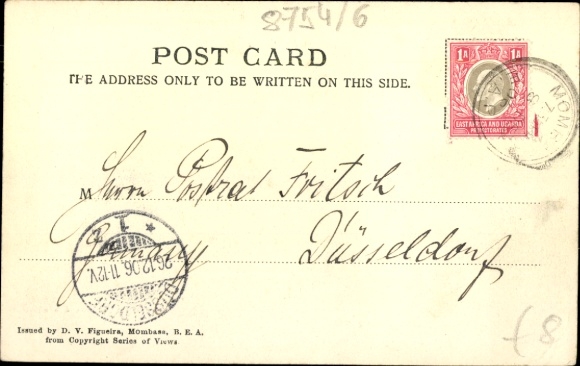 8754/6
POST CARD
THE ADDRESS ONLY TO BE WRITTEN ON THIS SIDE.
1A 1A
EAST AFRICA AND UGANDA
PROTECTORATES
MOMB
M Herrn Postrat Fritsch
Germany Düsseldorf
26.12.06.11-12V.
Issued by D. V. Figueira, Mombasa, B. E. A.
from Copyright Series of Views
£8